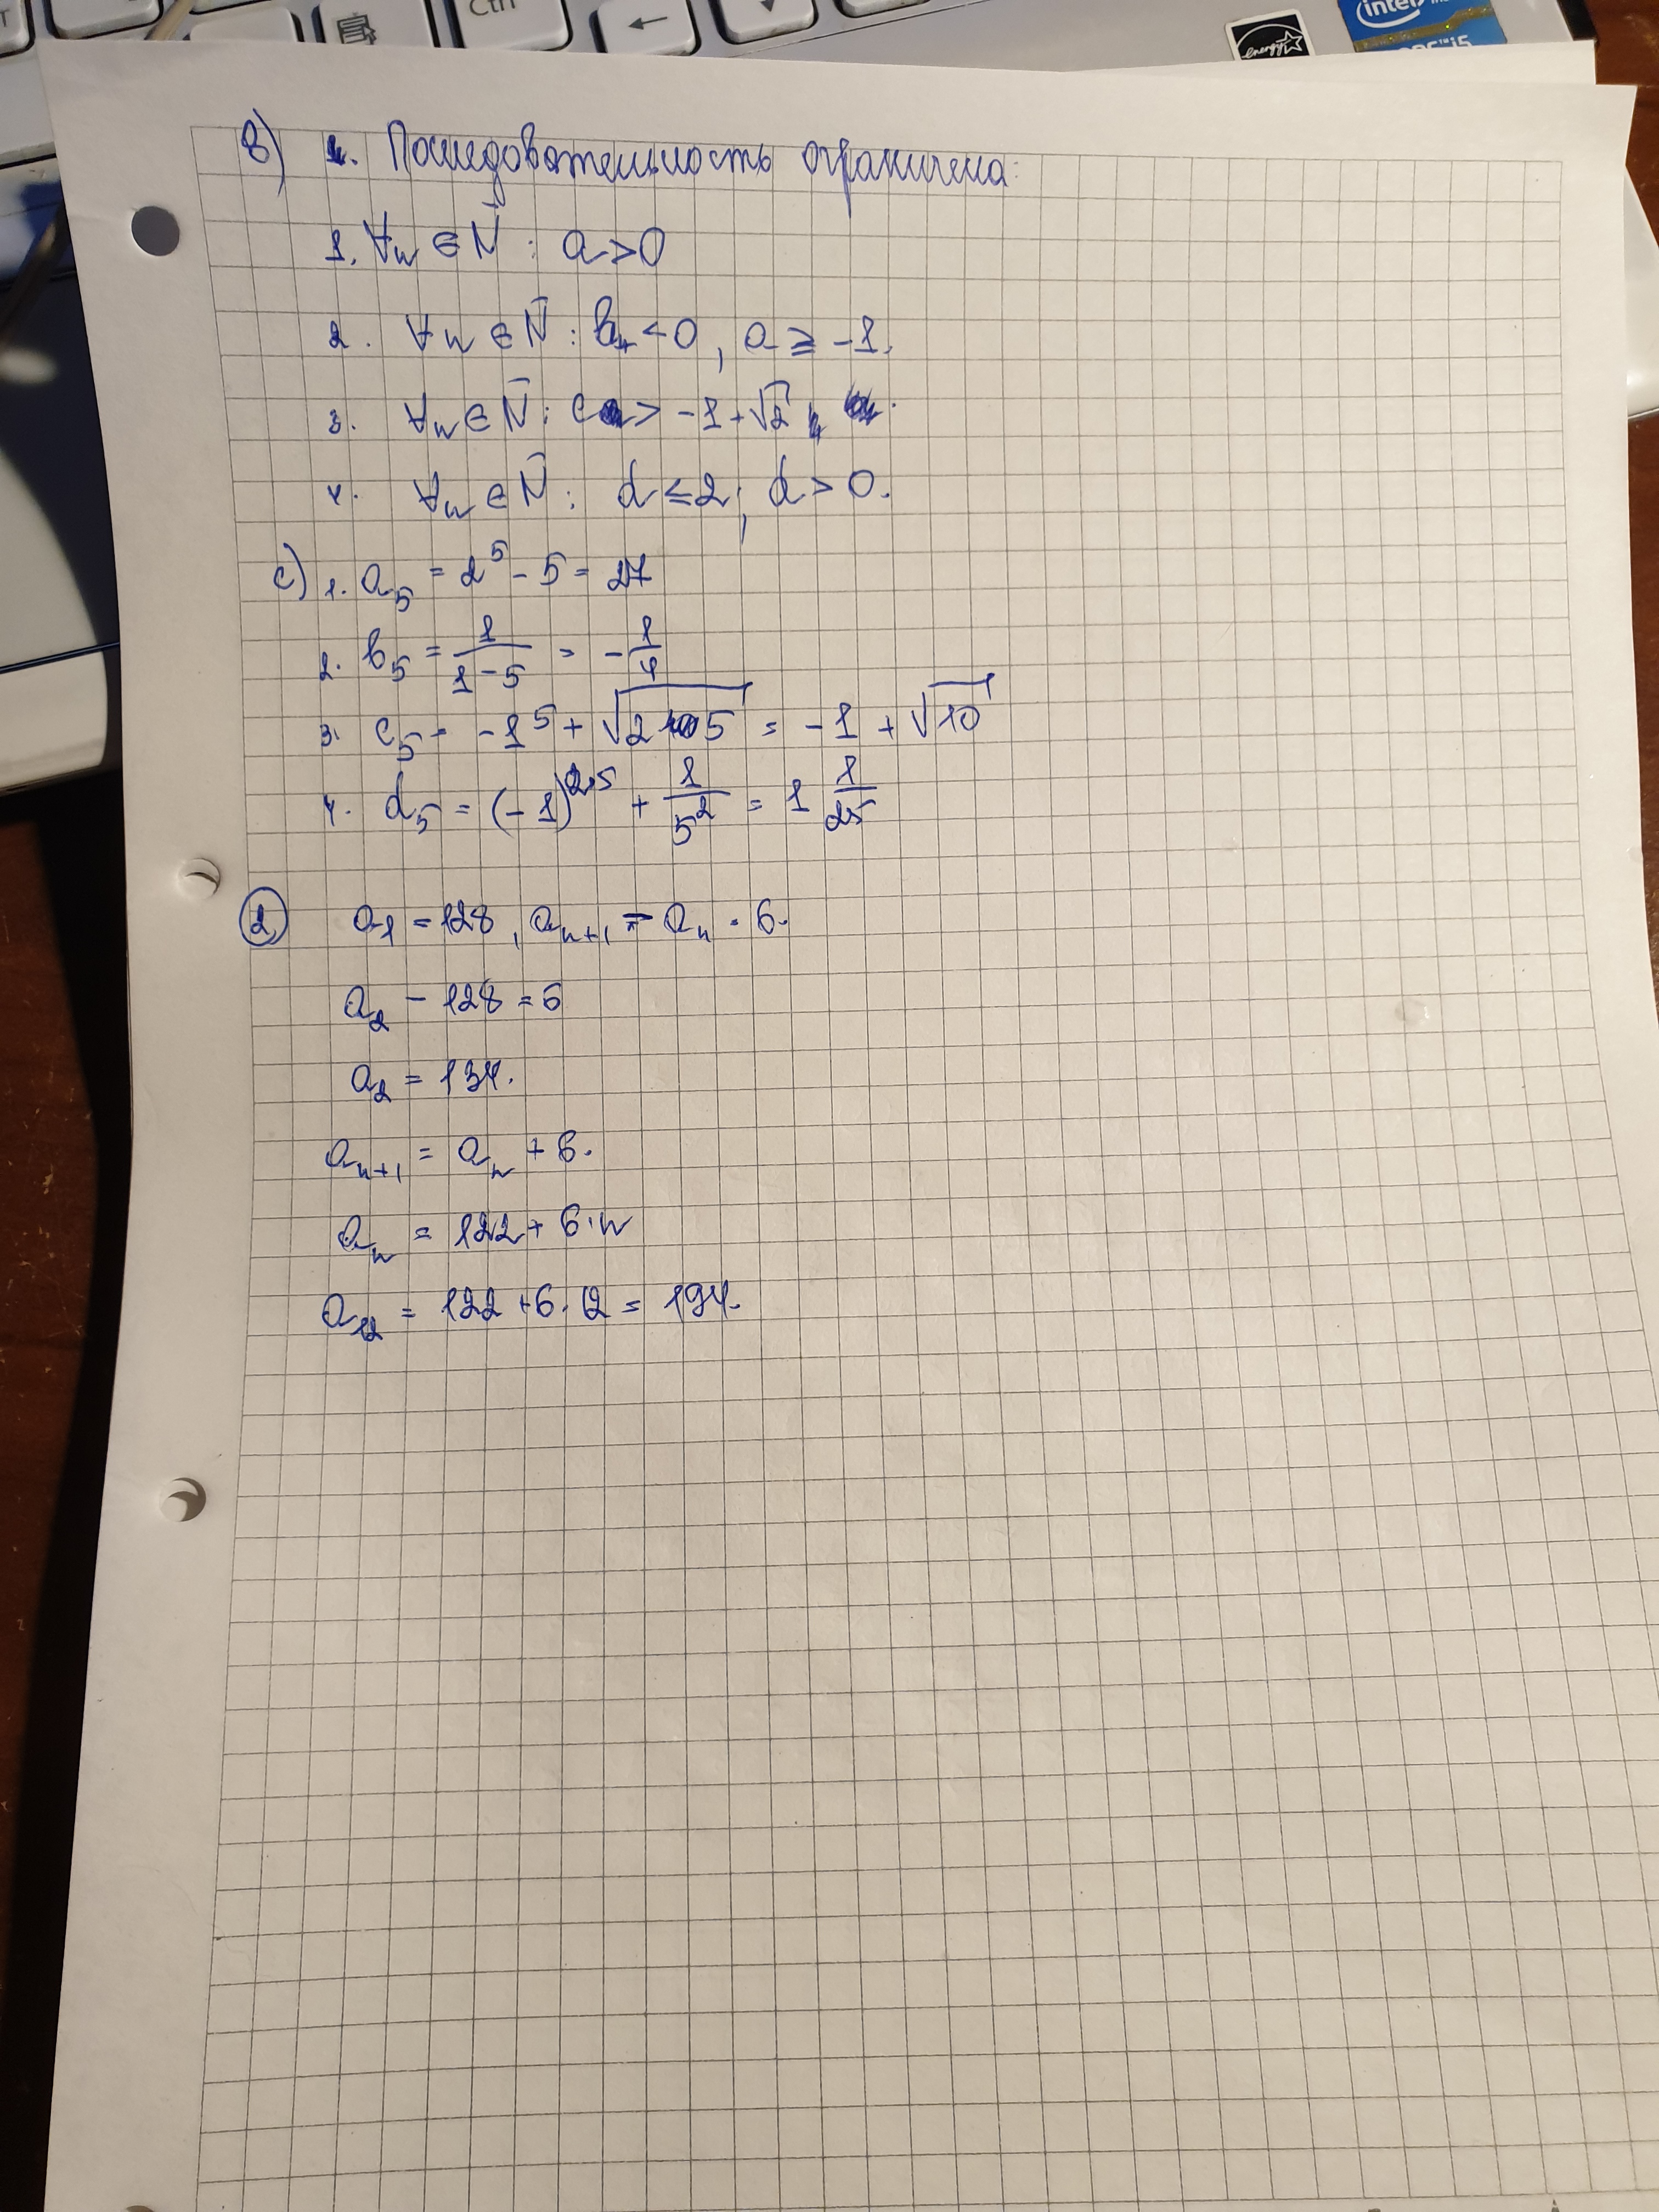 Ctrl
←
intel
energy
в) 1. Последовательность ограничена:
1. ∀n ∈ N : a > 0
2. ∀n ∈ N : bn < 0, a ≥ -1.
3. ∀n ∈ N : c > -1+√2
4. ∀n ∈ N : d ≤ 2; d > 0.
c) 1. a₅ = 2⁵ - 5 = 27
2. b₅ = 1/(1-5) = -1/4
3. c₅ = -1⁵ + √(2·5) = -1 + √10
4. d₅ = (-1)^(2·5) + 1/5² = 1 1/25
② a₁ = 128, aₙ₊₁ = aₙ · 6.
a₂ - 128 = 6
a₂ = 134.
aₙ₊₁ = aₙ + 6.
aₙ = 122 + 6·n
a₁₂ = 122 + 6·12 = 194.